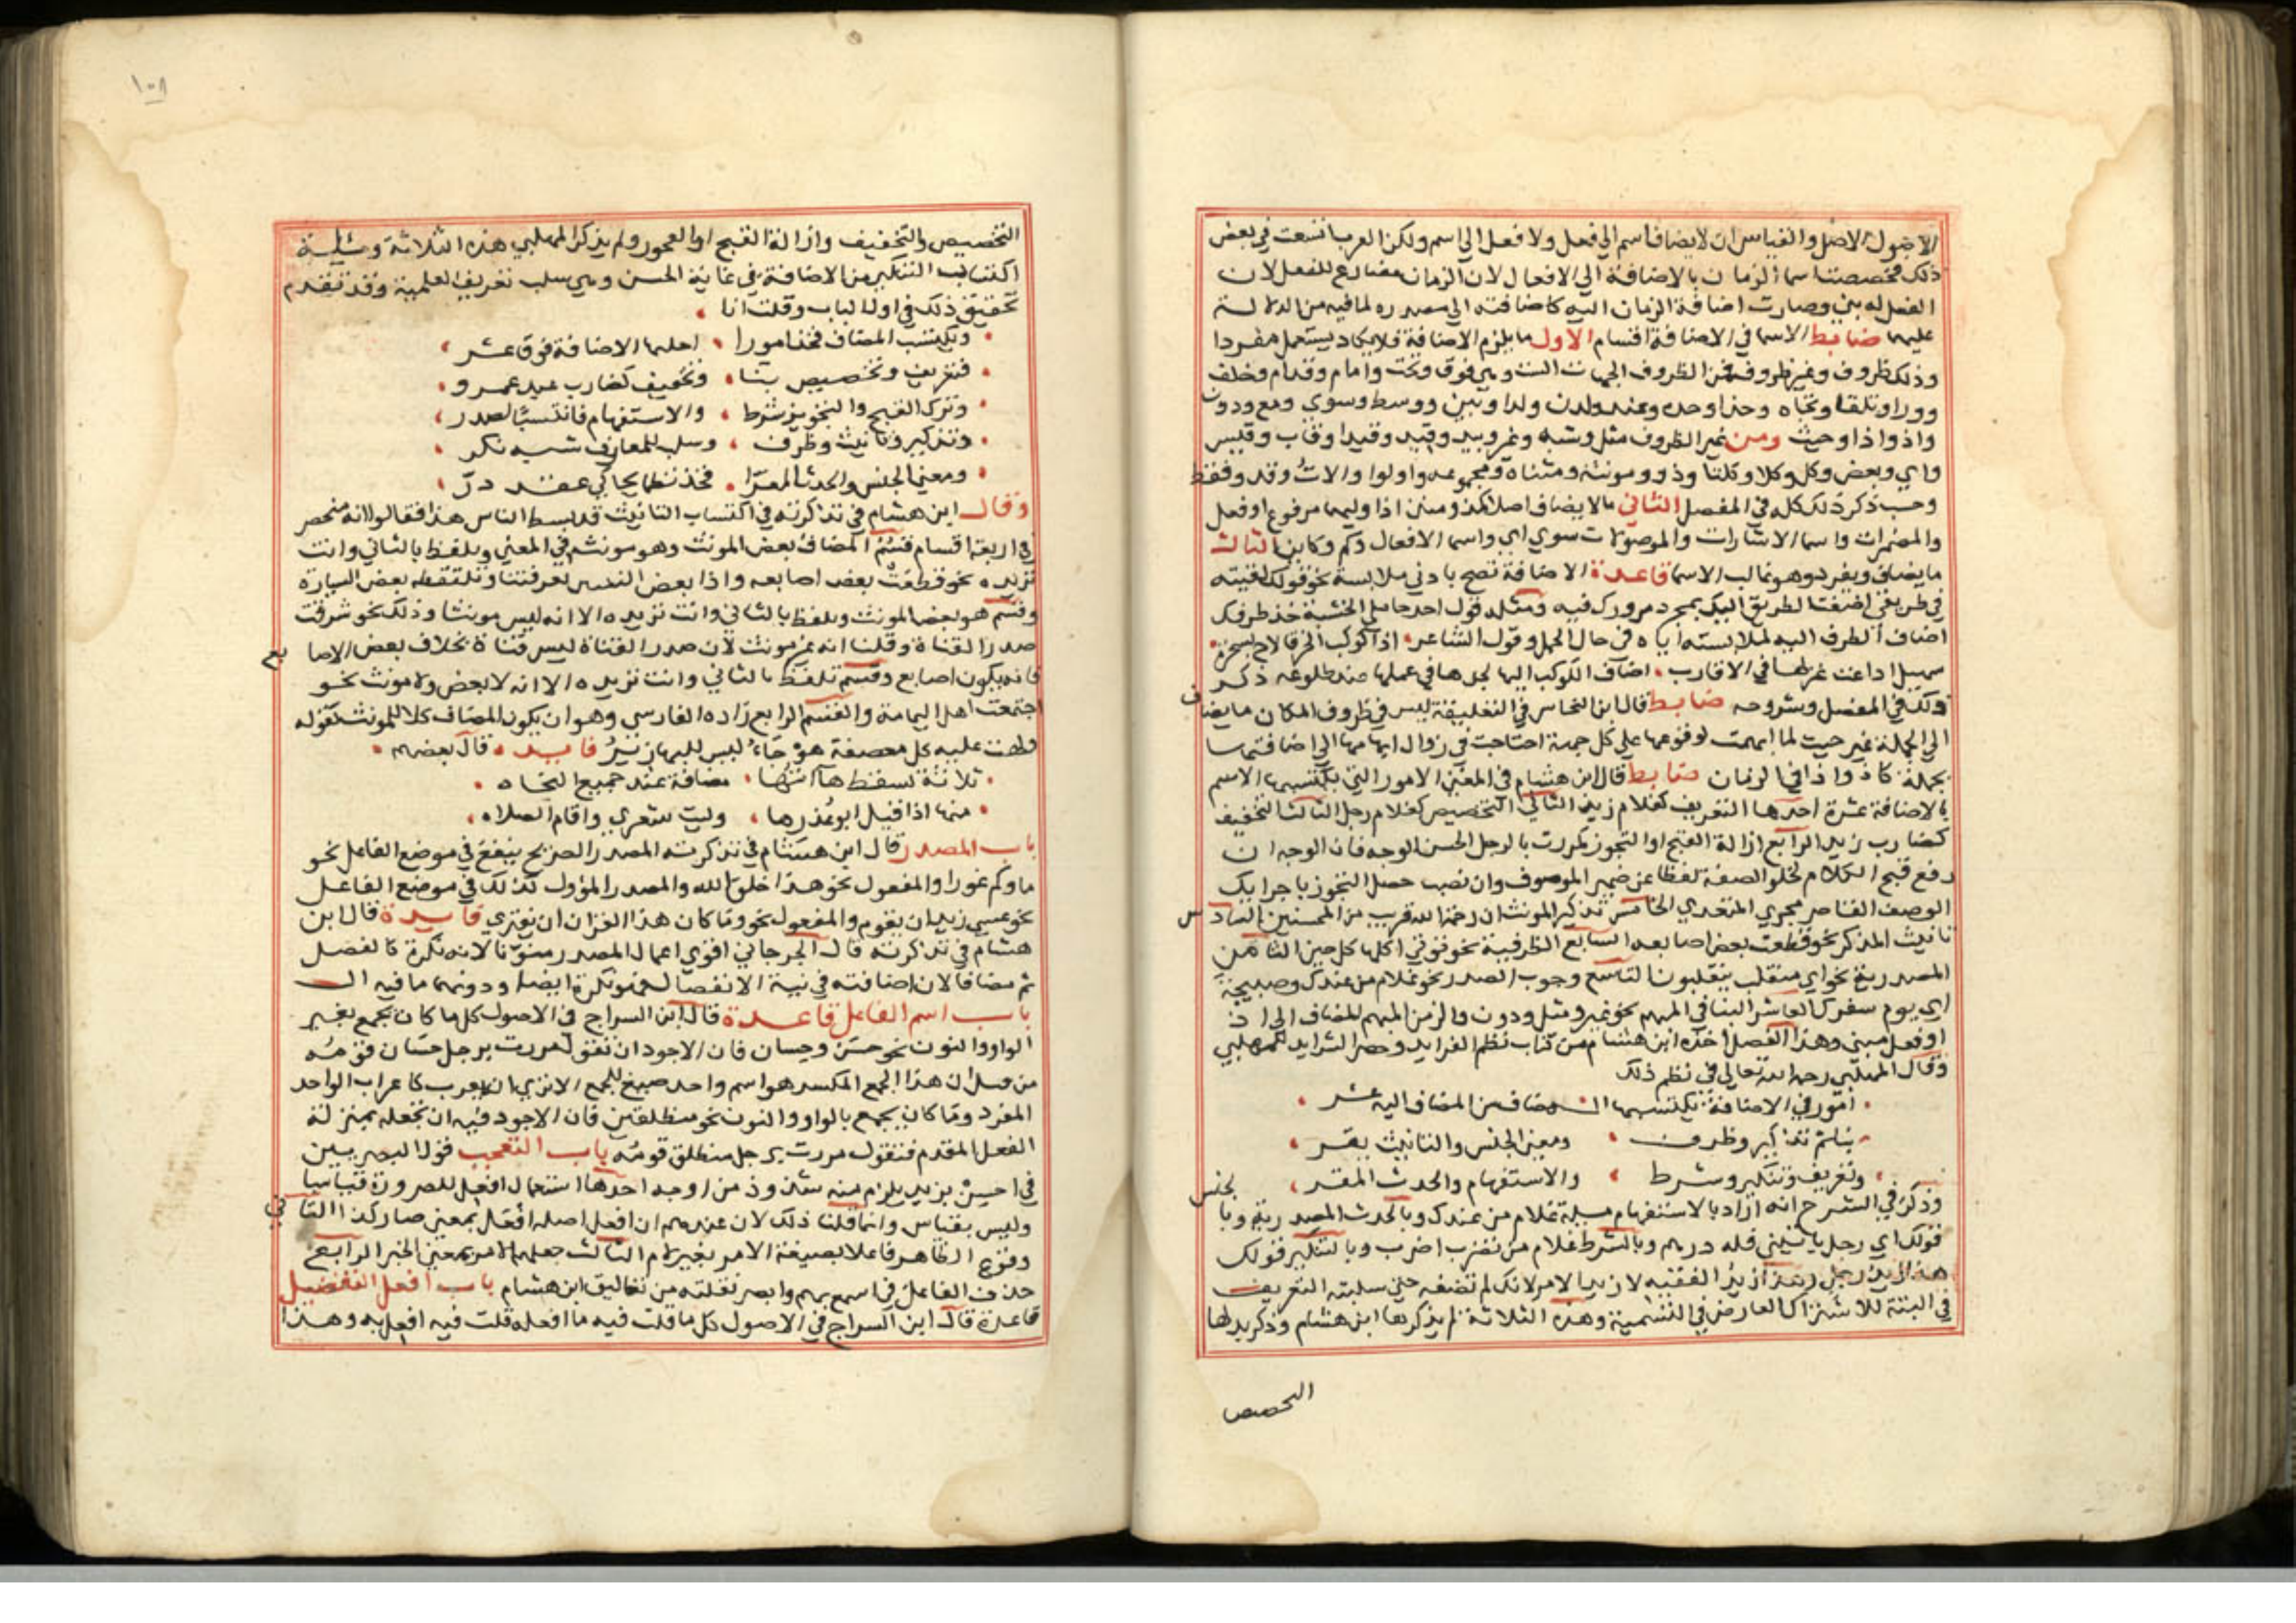 الاصول الاصل والقياس ان لا يضاف اسم الي فعل ولا فعل الي اسم ولكن العرب اتسعت في بعض
ذلك فخصصت اسما الزمان بالاضافة الي الافعال لان الزمان مضارع للفعل لان
الفعل له بني وصارت اضافة الزمان اليه كاضافته الي مصدره لما فيه من الدلالة
عليهما ضابط الاسما في الاضافة اقسام الاول ما يلزم الاضافة فلا يكاد يستعمل مفردا
وذلك ظروف وغير ظروف فمن الظروف الجهات الست وهي فوق وتحت وامام وقدام وخلف
وورا وتلقا وتجاه وحذا وحذه وعند ولدن ولدا وبين ووسط وسوي ومع ودون
واذ واذا وحيث ومن غير الظروف مثل وشبه وغير وبيد وقيد وقدا وقاب وقيس
واي وبعض وكل وكلا وكلتا وذو ومونثه ومثناه ومجموعه واولوا والات وقد وقط
وحسب ذكر ذلك كله في المفصل الثاني ما لا يضاف اصلا كمذ ومنذ اذا وليهما مرفوع او فعل
والمضمرات واسما الاشارات والموصولات سوي اي واسما الافعال وكم وكاين الثالث
ما يضاف ويفرد وهو غالب الاسما قاعدة الاضافة تصح بادني ملابسة نحو قولك لقيته
في طريقي اضفت الطريق اليك بمجرد مرورك فيه ومثله قول احد حاملي الخشبة خذ طرفك
اضاف الطرف اليه لملابسته اياه في حال الحمل وقول الشاعر اذا كوكب الخرقا لاح بسحرة
سهيل اذاعت غزلها في الاقارب اضاف الكوكب اليها لجدها في عملها عند طلوعه ذكر
ذلك في المفصل وشروحه ضابط قال ابن النحاس في التعليقة ليس في ظروف المكان ما يضاف
الي الجملة غير حيث لما ابهمت لوقوعها علي كل جهة احتاجت في زوال ابهامها الي اضافتها
بجملة كاذ واذا في الزمان ضابط قال ابن هشام في المغني الامور التي يكتسبها الاسم
بالاضافة عشرة احدها التعريف كغلام زيد الثاني التخصيص كغلام رجل الثالث التخفيف
كضارب زيد الرابع ازالة القبح او التجوز كمررت بالرجل الحسن الوجه فان الوجه ان
رفع قبح الكلام لخلو الصفة لفظا عن ضمير الموصوف وان نصب حصل التجوز باجرايك
الوصف القاصر مجري المتعدي الخامس تذكير المونث ان رحمة الله قريب من المحسنين السادس
تانيث المذكر نحو قطعت بعض اصابعه السابع الظرفية نحو تؤتي اكلها كل حين الثامن
المصدرية نحو اي منقلب ينقلبون التاسع وجوب الصدر نحو غلام من عندك وصبيحة
اي يوم سفرك العاشر البنا في المبهم نحو غير ومثل ودون والزمن المبهم المضاف الي اذ
او فعل مبني وهذا الفصل اخذه ابن هشام من كتاب نظم الفرايد وحصر الشرايد للمهلبي
وقال المهلبي رحمه الله تعالي في نظم ذلك
امور في الاضافة يكتسبها المضاف من المضاف اليه عشر
بنا ثم تذكير وظرف ومعني الجنس والتانيث يقر
وتعريف وتنكير وشرط والاستفهام والحدث المقر
وذكر في الشرح انه اراد بالاستفهام مسيلة غلام من عندك وبالحدث المصدرية وبالجنس
قولك اي رجل ياتيني فله درهم وبالشرط غلام من تضرب اضرب وبالتنكير قولك
هذا زيد رجل وهذا زيد الفقيه لا زيد الامر لانك لم تضفه حتي سلبته التعريف
في البتة للاشتراك العارض في التسمية وهذه الثلاثة لم يذكرها ابن هشام وذكر بدلها
التخصيص
١٠٨
التخصيص والتخفيف وازالة القبح او التجوز ولم يذكر المهلبي هذه الثلاثة ومسيلة
اكتساب التنكير من الاضافة في غاية الحسن وهي سلب تعريف العلمية وقد تقدم
تحقيق ذلك في اول الباب وقلت انا
ويكتسب المضاف فخذ امورا احلها الاضافة فوق عشر
فتعريف وتخصيص بنا وتخفيف كضارب عبد عمرو
وترك القبح والتجويز شرط والاستفهام فانتسبا لصدر
وتذكير وتانيث وظرف وسلب للمعارف شبه نكر
ومعني الجنس والحدث المعرا فخذ نظما يحاكي عقد در
وقال ابن هشام في تذكرته في اكتساب التانيث قد بسط الناس هذا فقالوا انه منحصر
في اربعة اقسام قسم المضاف بعض المونث وهو مونث في المعني وتلفظ بالثاني وانت
تريده نحو قطعت بعض اصابعه واذا بعض السنين تعرقتنا وتلتقطه بعض السيارة
وقسم هو بعض المونث وتلفظ بالثاني وانت تريده الا انه ليس مونثا وذلك نحو شرقت
صدر القناة وقلنا انه غير مونث لان صدر القناة ليس قناة بخلاف بعض الاصابع
فانه يكون اصابع وقسم تلفظ بالثاني وانت تريده الا انه لا بعض ولا مونث نحو
اجتمعت اهل اليمامة والقسم الرابع زاده الفارسي وهو ان يكون المضاف كلا للمونث كقوله
ولهت عليه كل معصفة هوجاء ليس للبها زبر فايدة قال بعضهم
ثلاثة تسقط هاآتها مضافة عند جميع النحاه
منها اذا قيل ابو عذرها وليت شعري واقام الصلاه
باب المصدر قال ابن هشام في تذكرته المصدر الصريح يقع في موضع الفاعل نحو
ماوكم غورا والمفعول نحو هذا خلق الله والمصدر المؤول كذلك في موضع الفاعل
نحو عسي زيد ان يقوم والمفعول نحو وما كان هذا القران ان يفتري فايدة قال ابن
هشام في تذكرته قال الجرجاني اقوي اعمال المصدر منونا لانه نكرة كالفعل
ثم مضافا لان اضافته في نية الانفصال فهو نكرة ايضا ودونهما ما فيه ال
باب اسم الفاعل قاعدة قال ابن السراج في الاصول كل ما كان يجمع بغير
الواو والنون نحو حسن وحسان فان الاجود ان تقول مررت برجل حسان قومه
من قبل ان هذا الجمع المكسر هو اسم واحد صيغ للجمع الا تري انه يعرب كاعراب الواحد
المفرد وما كان يجمع بالواو والنون نحو منطلقين فان الاجود فيه ان تجعله بمنزلة
الفعل المقدم فتقول مررت برجل منطلق قومه باب التعجب قول البصريين
في احسن بزيد يلزم منه شذوذ من اوجه احدها استعمال افعل للصيرورة قياسا
وليس بقياس وانما قلنا ذلك لان عندهم ان افعل اصله افعل بمعني صار كذا الثاني
وقوع الظاهر فاعلا بصيغة الامر بغير لام الثالث جعلهم الامر بمعني الخبر الرابع
حذف الفاعل في اسمع بهم وابصر نقلته من تعاليق ابن هشام باب افعل التفضيل
قاعدة قال ابن السراج في الاصول كل ما قلت فيه ما افعله قلت فيه افعل به وهذا